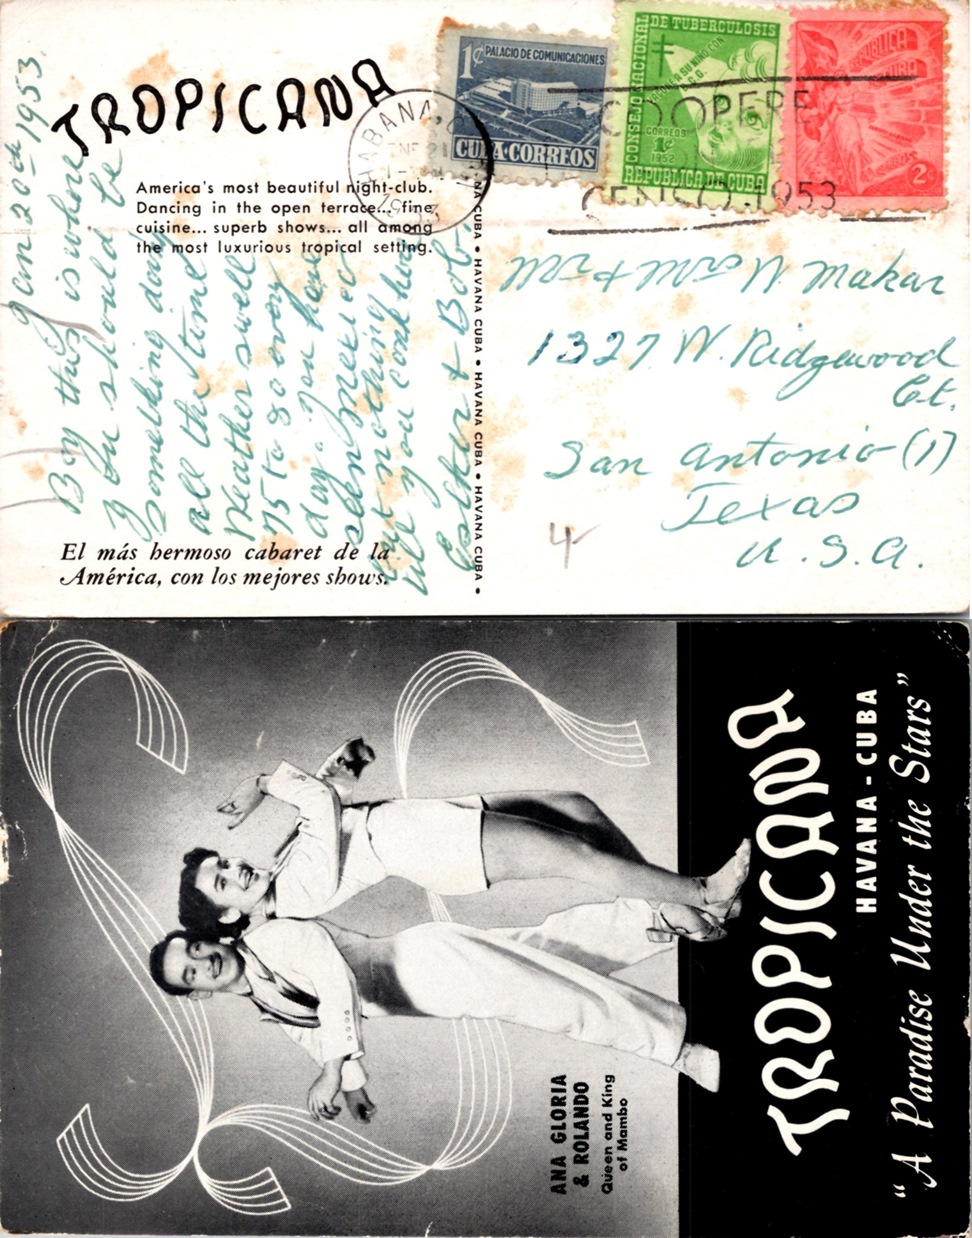 TROPICANA
America's most beautiful night-club.
Dancing in the open terrace... fine
cuisine... superb shows... all among
the most luxurious tropical setting.
Jan 20th 1953
Boy this is where
you should be
Something doing
all the time
Weather swell
75 to 80 every
day. you have
seen Mexico
but nothing
till you come here
Esther & Bob-
El más hermoso cabaret de la
América, con los mejores shows.
HAVANA CUBA • HAVANA CUBA • HAVANA CUBA • HAVANA CUBA • HAVANA CUBA •
1¢ PALACIO DE COMUNICACIONES
CUBA·CORREOS
CONSEJO NACIONAL DE TUBERCULOSIS
CORREOS
1¢
1952
REPUBLICA DE CUBA
REPUBLICA
CUBA
2¢
HABANA,
COOPERE
1953
Mr & Mrs W. Makar
1327 W. Ridgewood
Ct.
San Antonio (1)
Texas
U.S.A.
4
ANA GLORIA
& ROLANDO
Queen and King
of Mambo
TROPICANA
HAVANA - CUBA
"A Paradise Under the Stars"